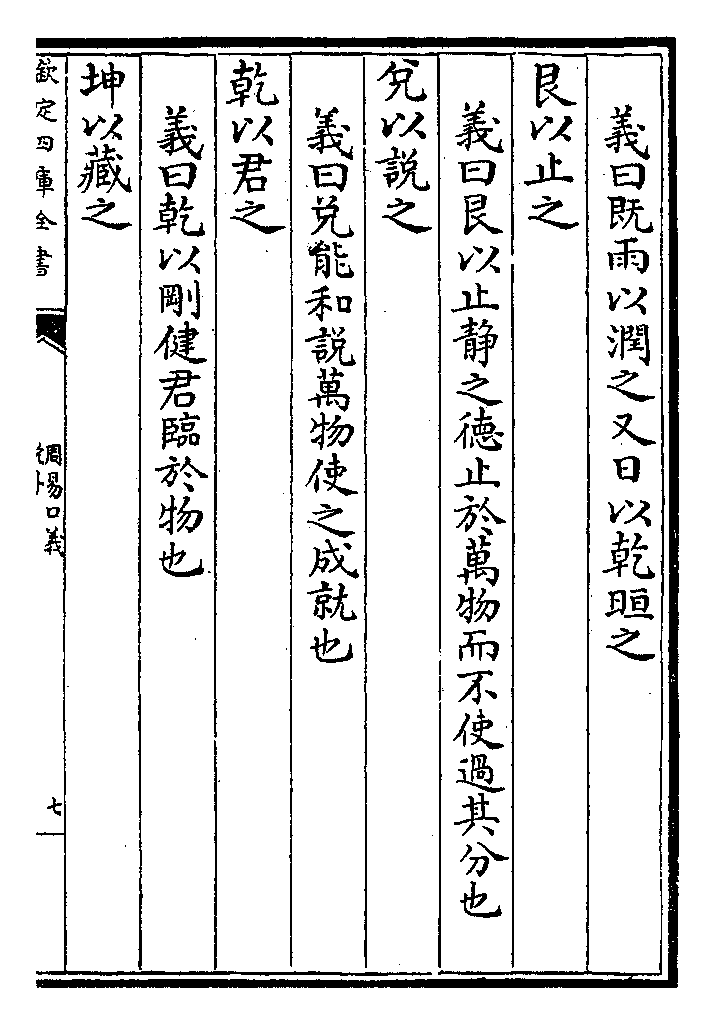 義曰既雨以潤之又日以乾晅之
艮以止之
義曰艮以止靜之德止於萬物而不使過其分也
兌以說之
義曰兌能和說萬物使之成就也
乾以君之
義曰乾以剛健君臨於物也
坤以藏之
欽定四庫全書
周易口義
七